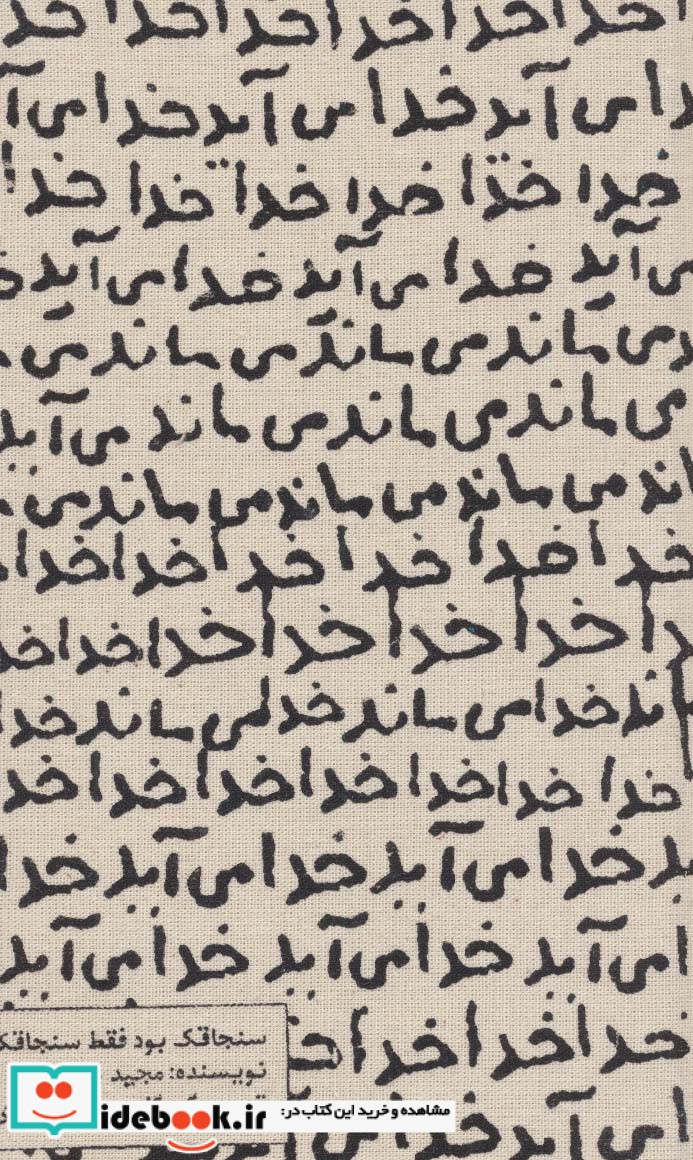 ا خدا خدا خدا خدا خدا خد
ا می آید خدا می آید خدا می آ
خدا خدا خدا خدا خدا خدا
می آید خدا می آید خدا می آید
می ماندمی ماندمی ماندمی
ی ماندمی ماندمی ماند می آید
اند می ماندمی ماندمی ماندمی
خدا خدا خدا خدا خدا خدا
ا خدا خدا خدا خدا خدا خد
اند خدا می ماند خدا می ماند خدا
خدا خدا خدا خدا خدا خدا خد
ید خدا می آید خدا می آید خدا
ا می آید خدا می آید خدا می آید
خدا خدا خدا
سنجاقک بود فقط سنجاقک
نویسنده: مجید
می آید خدا
مشاهده و خرید این کتاب در:
idebook.ir